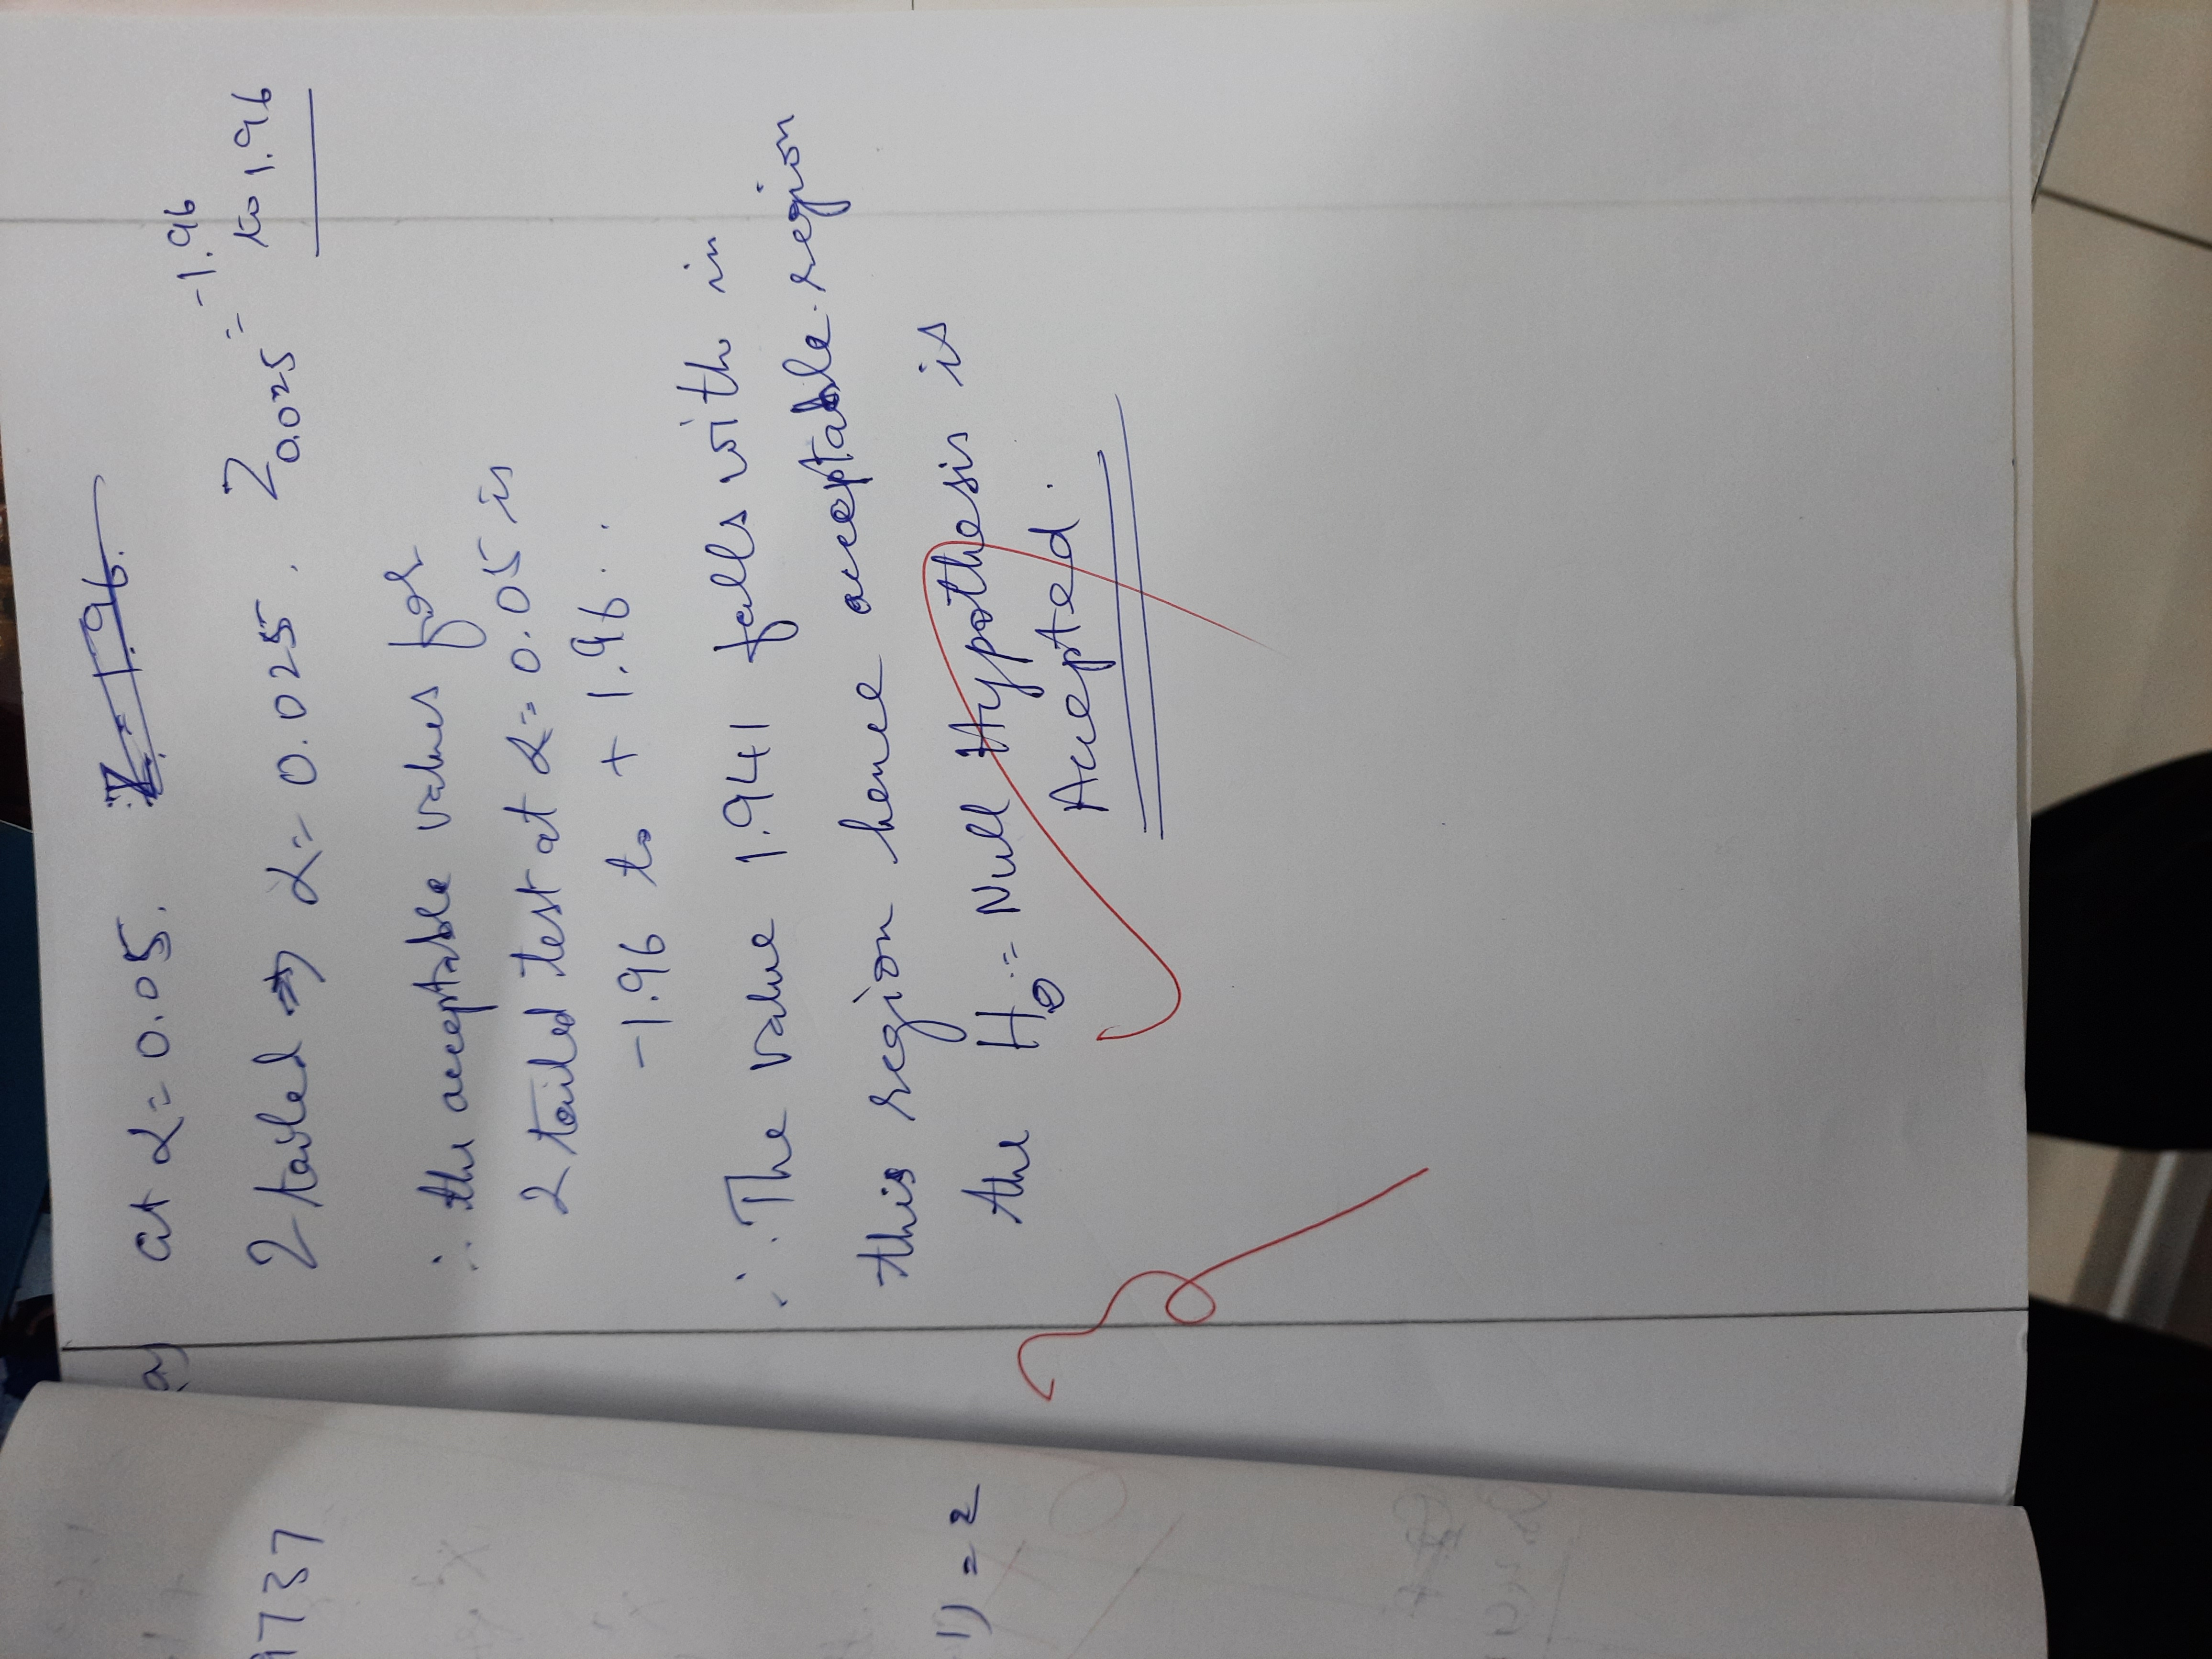 a) at α = 0.05.
2 tailed ⇒ α = 0.025. Z0.025 = -1.96
to 1.96
∴ the acceptable values for
2 tailed test at α = 0.05 is
-1.96 to + 1.96..
∴ The value 1.941 falls with in
this region hence acceptable region
the H0 = Null Hypothesis is
Accepted.
9737
1) = 2